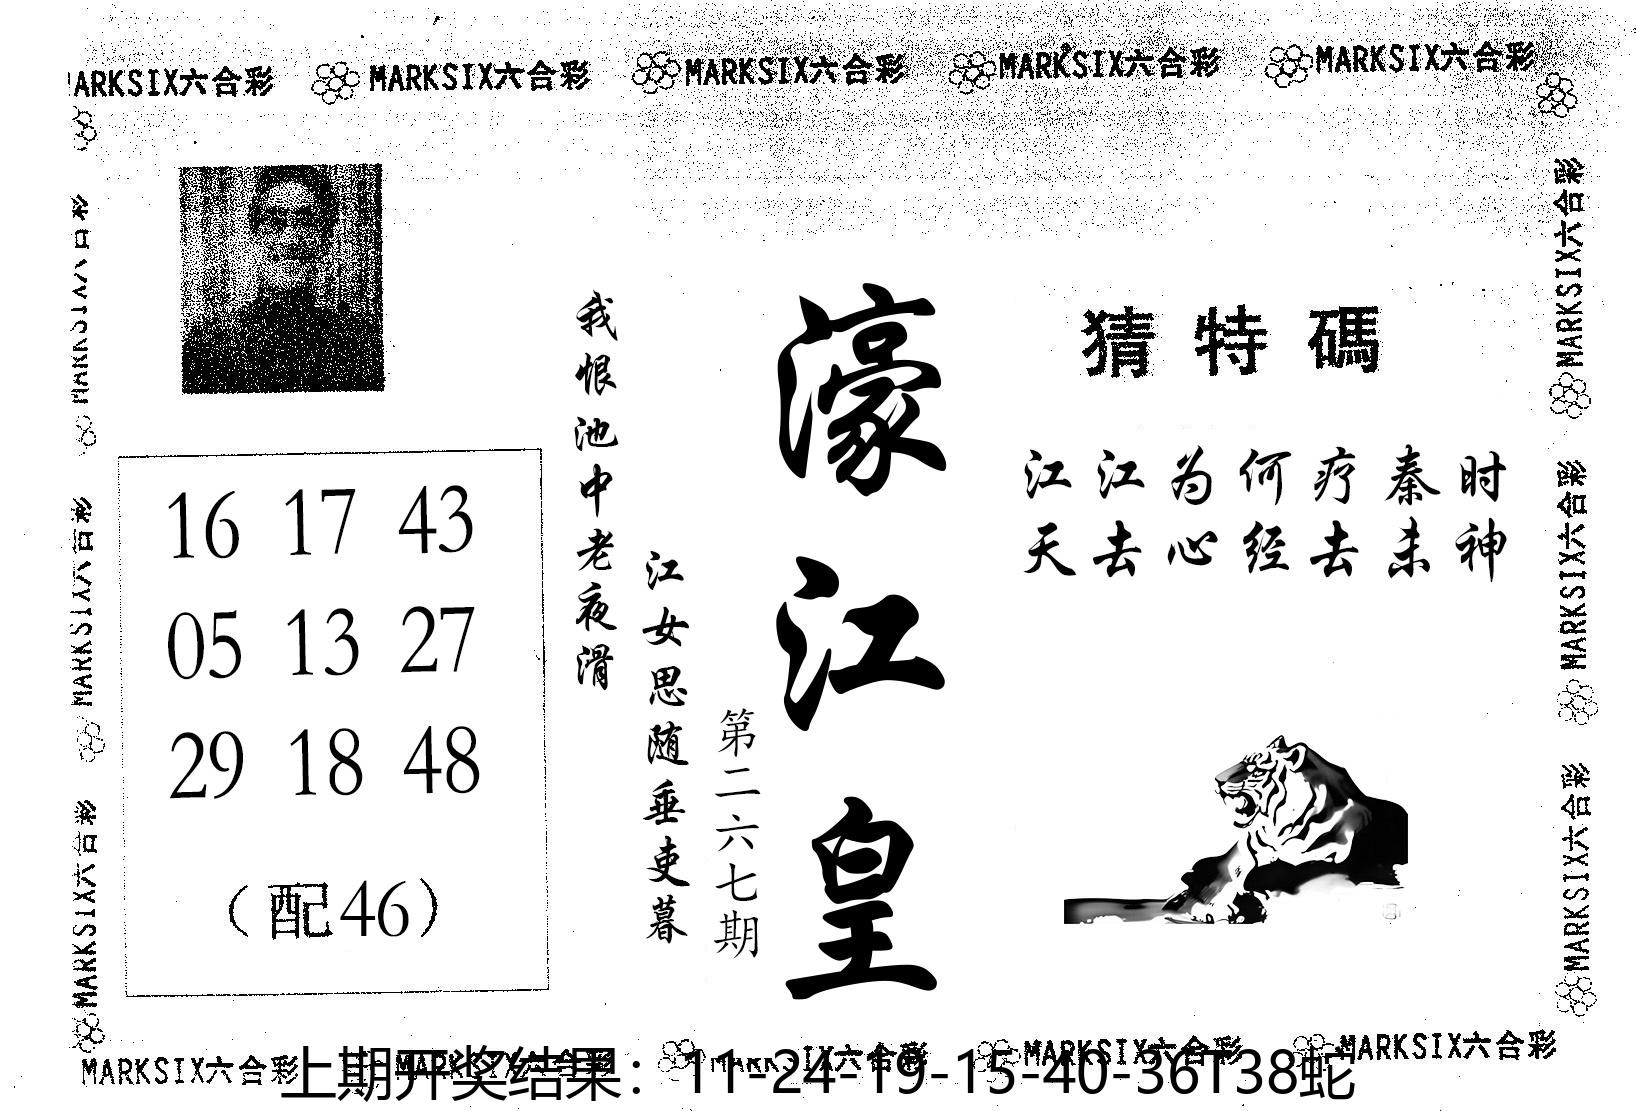 MARKSIX六合彩 MARKSIX六合彩 MARKSIX六合彩 MARKSIX六合彩 MARKSIX六合彩
MARKSIX六合彩
MARKSIX六合彩
MARKSIX六合彩
猜特碼
江江为何疗秦时
天去心经去未神
濠江皇
第二六七期
江女思随垂吏暮
我恨池中老夜滑
16 17 43
05 13 27
29 18 48
（配46）
MARKSIX六合彩
MARKSIX六合彩
MARKSIX六合彩
MARKSIX六合彩 MARKSIX六合彩 MARKSIX六合彩 MARKSIX六合彩 MARKSIX六合彩
上期开奖结果：11-24-19-15-40-36T38蛇